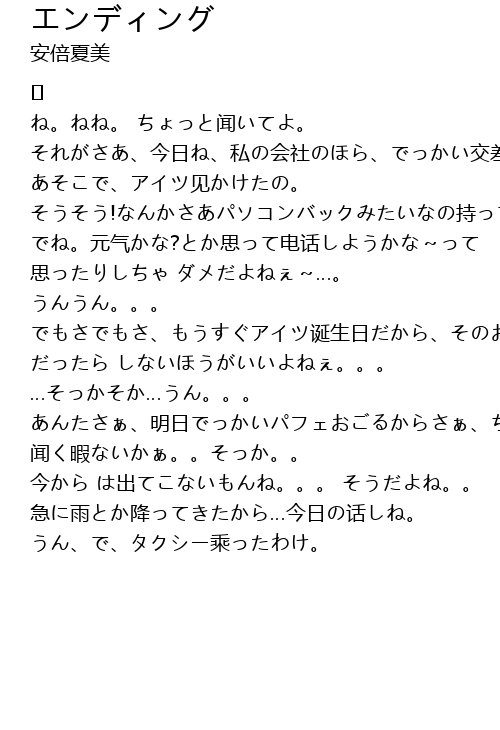 エンディング
安倍夏美
[]
ね。ねね。 ちょっと闻いてよ。
それがさあ、今日ね、私の会社のほら、でっかい交差
あそこで、アイツ见かけたの。
そうそう!なんかさあパソコンバックみたいなの持っ
でね。元气かな?とか思って电话しようかな～って
思ったりしちゃ ダメだよねぇ～...。
うんうん。。。
でもさでもさ、もうすぐアイツ诞生日だから、その
だったら しないほうがいいよねぇ。。。
...そっかそか...うん。。。
あんたさぁ、明日でっかいパフェおごるからさぁ、
闻く暇ないかぁ。。そっか。。
今から は出てこないもんね。。。 そうだよね。。
急に雨とか降ってきたから...今日の话しね。
うん、で、タクシー乘ったわけ。